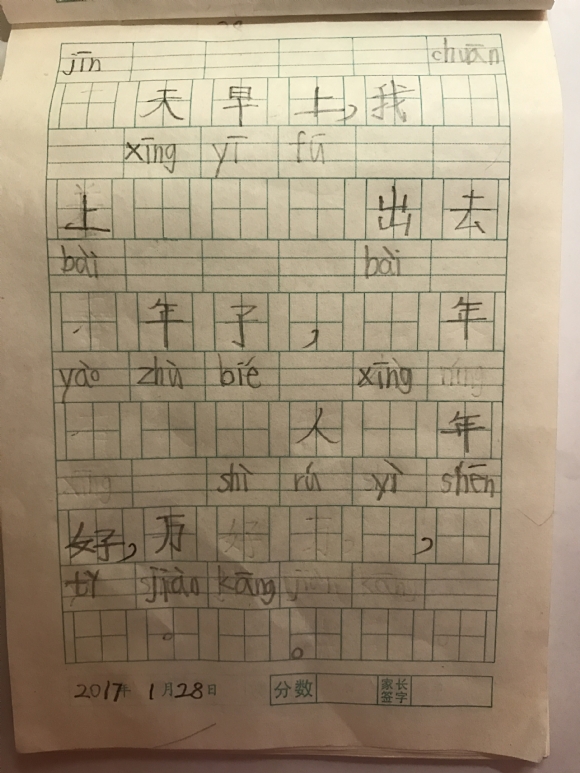 jīn chuān
天早上,我
xīng yī fú
上 出去
bài bài
年了, 年
yào zhù bié xīng níng
人 年
xīng shì rú yì shēn
好,万 好 万 ,
tǐ jiàn kāng jiàn kāng
。 。
2017年 1月28日 分数 家长签字